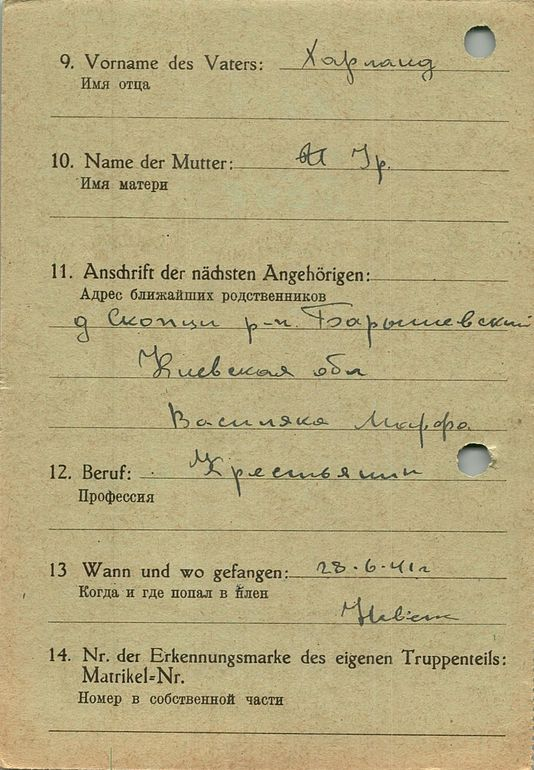 9. Vorname des Vaters: Харланд
Имя отца
10. Name der Mutter:
Имя матери
11. Anschrift der nächsten Angehörigen:
Адрес ближайших родственников
д Скопци р-н. Барышевский
Киевская обл
Василяка Марфа
12. Beruf: Крестьянин
Профессия
13 Wann und wo gefangen: 28·6·41г
Когда и где попал в плен
14. Nr. der Erkennungsmarke des eigenen Truppenteils:
Matrikel=Nr.
Номер в собственной части